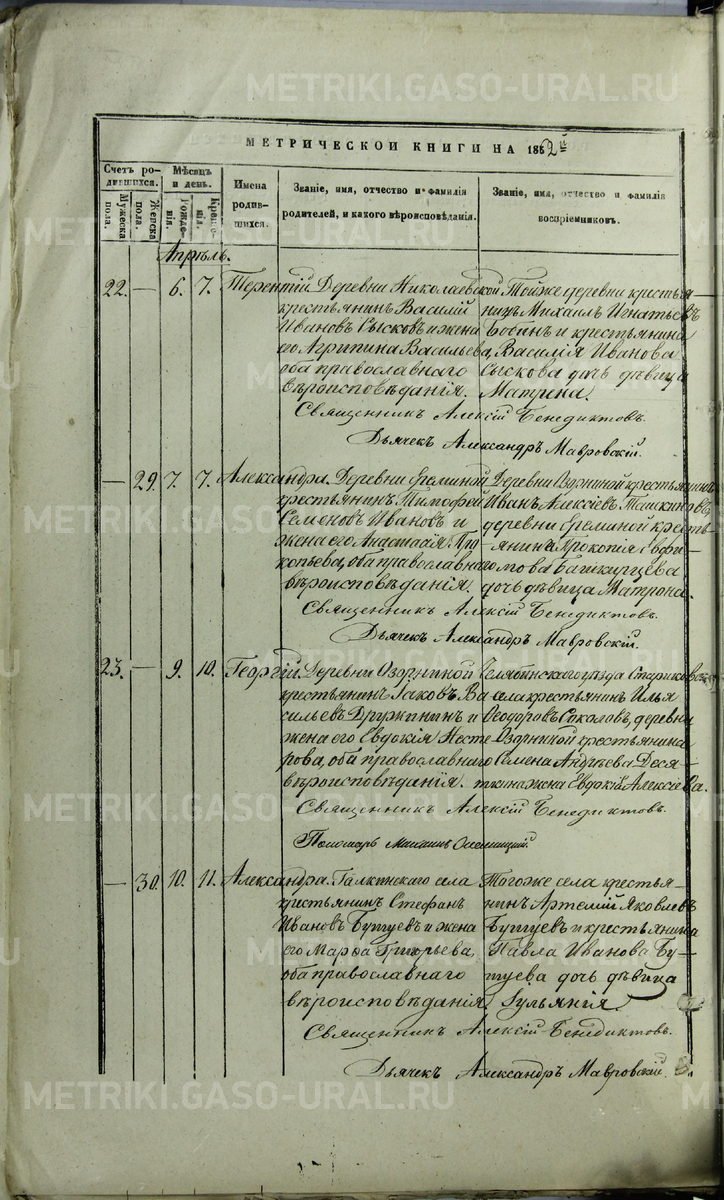 МЕТРИЧЕСКОЙ КНИГИ НА 1862й
Счетъ родившихся.
Мужеска пола.
Женска пола.
Мѣсяцъ и день.
Рожденія.
Крещенія.
Имена родившихся.
Званіе, имя, отчество и фамилія родителей, и какого вѣроисповѣданія.
Званіе, имя, отчество и фамилія воспріемниковъ.
Апрѣль.
22. — 6. 7. Терентій Деревни Николаевской Тойже деревни крестья-
крестьянинъ Василій нинъ Михаилъ Игнатьевъ
Ивановъ Сысковъ и жена Бобинъ и крестьянина
его Агрипина Васильева, Василія Иванова
оба православнаго Сыскова дочь дѣвица
вѣроисповѣданія. Матрена.
Священникъ Алексій Бенедиктовъ.
Дьячекъ Александръ Мавровскій.
— 29. 7. 7. Александра. Деревни Ѳеминой Деревни Озорниной крестьянинъ
крестьянинъ Тимофей Иванъ Алексіевъ Ташкиновъ
Семеновъ Ивановъ и деревни Ѳеминой кресть-
жена его Анастасія Про- янина Прокопія Евфи-
копьева, оба православна- мова Башкирцева
вѣроисповѣданія. дочь дѣвица Матрона.
Священникъ Алексій Бенедиктовъ.
Дьячекъ Александръ Мавровскій.
23. — 9. 10. Георгій. Деревни Озорниной Челябинскаго уѣзда
крестьянинъ Іаковъ Ва- села крестьянинъ Илья
сильевъ Дружининъ и Ѳеодоровъ Соколовъ, деревни
жена его Евдокія Несте- Озорниной крестьянина
рова, оба православнаго Семена Андреева Деся-
вѣроисповѣданія. ткина жена Евдокія Алексіева.
Священникъ Алексій Бенедиктовъ.
Пономарь
— 30. 10. 11. Александра. Галкинскаго села Тогоже села крестья-
крестьянинъ Стефанъ нинъ Артемій Яковлевъ
Ивановъ Бутуевъ и жена Бутуевъ и крестьянина
его Марѳа Григорьева, Павла Иванова Бу-
оба православнаго туева дочь дѣвица
вѣроисповѣданія Іульянія.
Священникъ Алексій Бенедиктовъ.
Дьячекъ Александръ Мавровскій.
METRIKI.GASO-URAL.RU